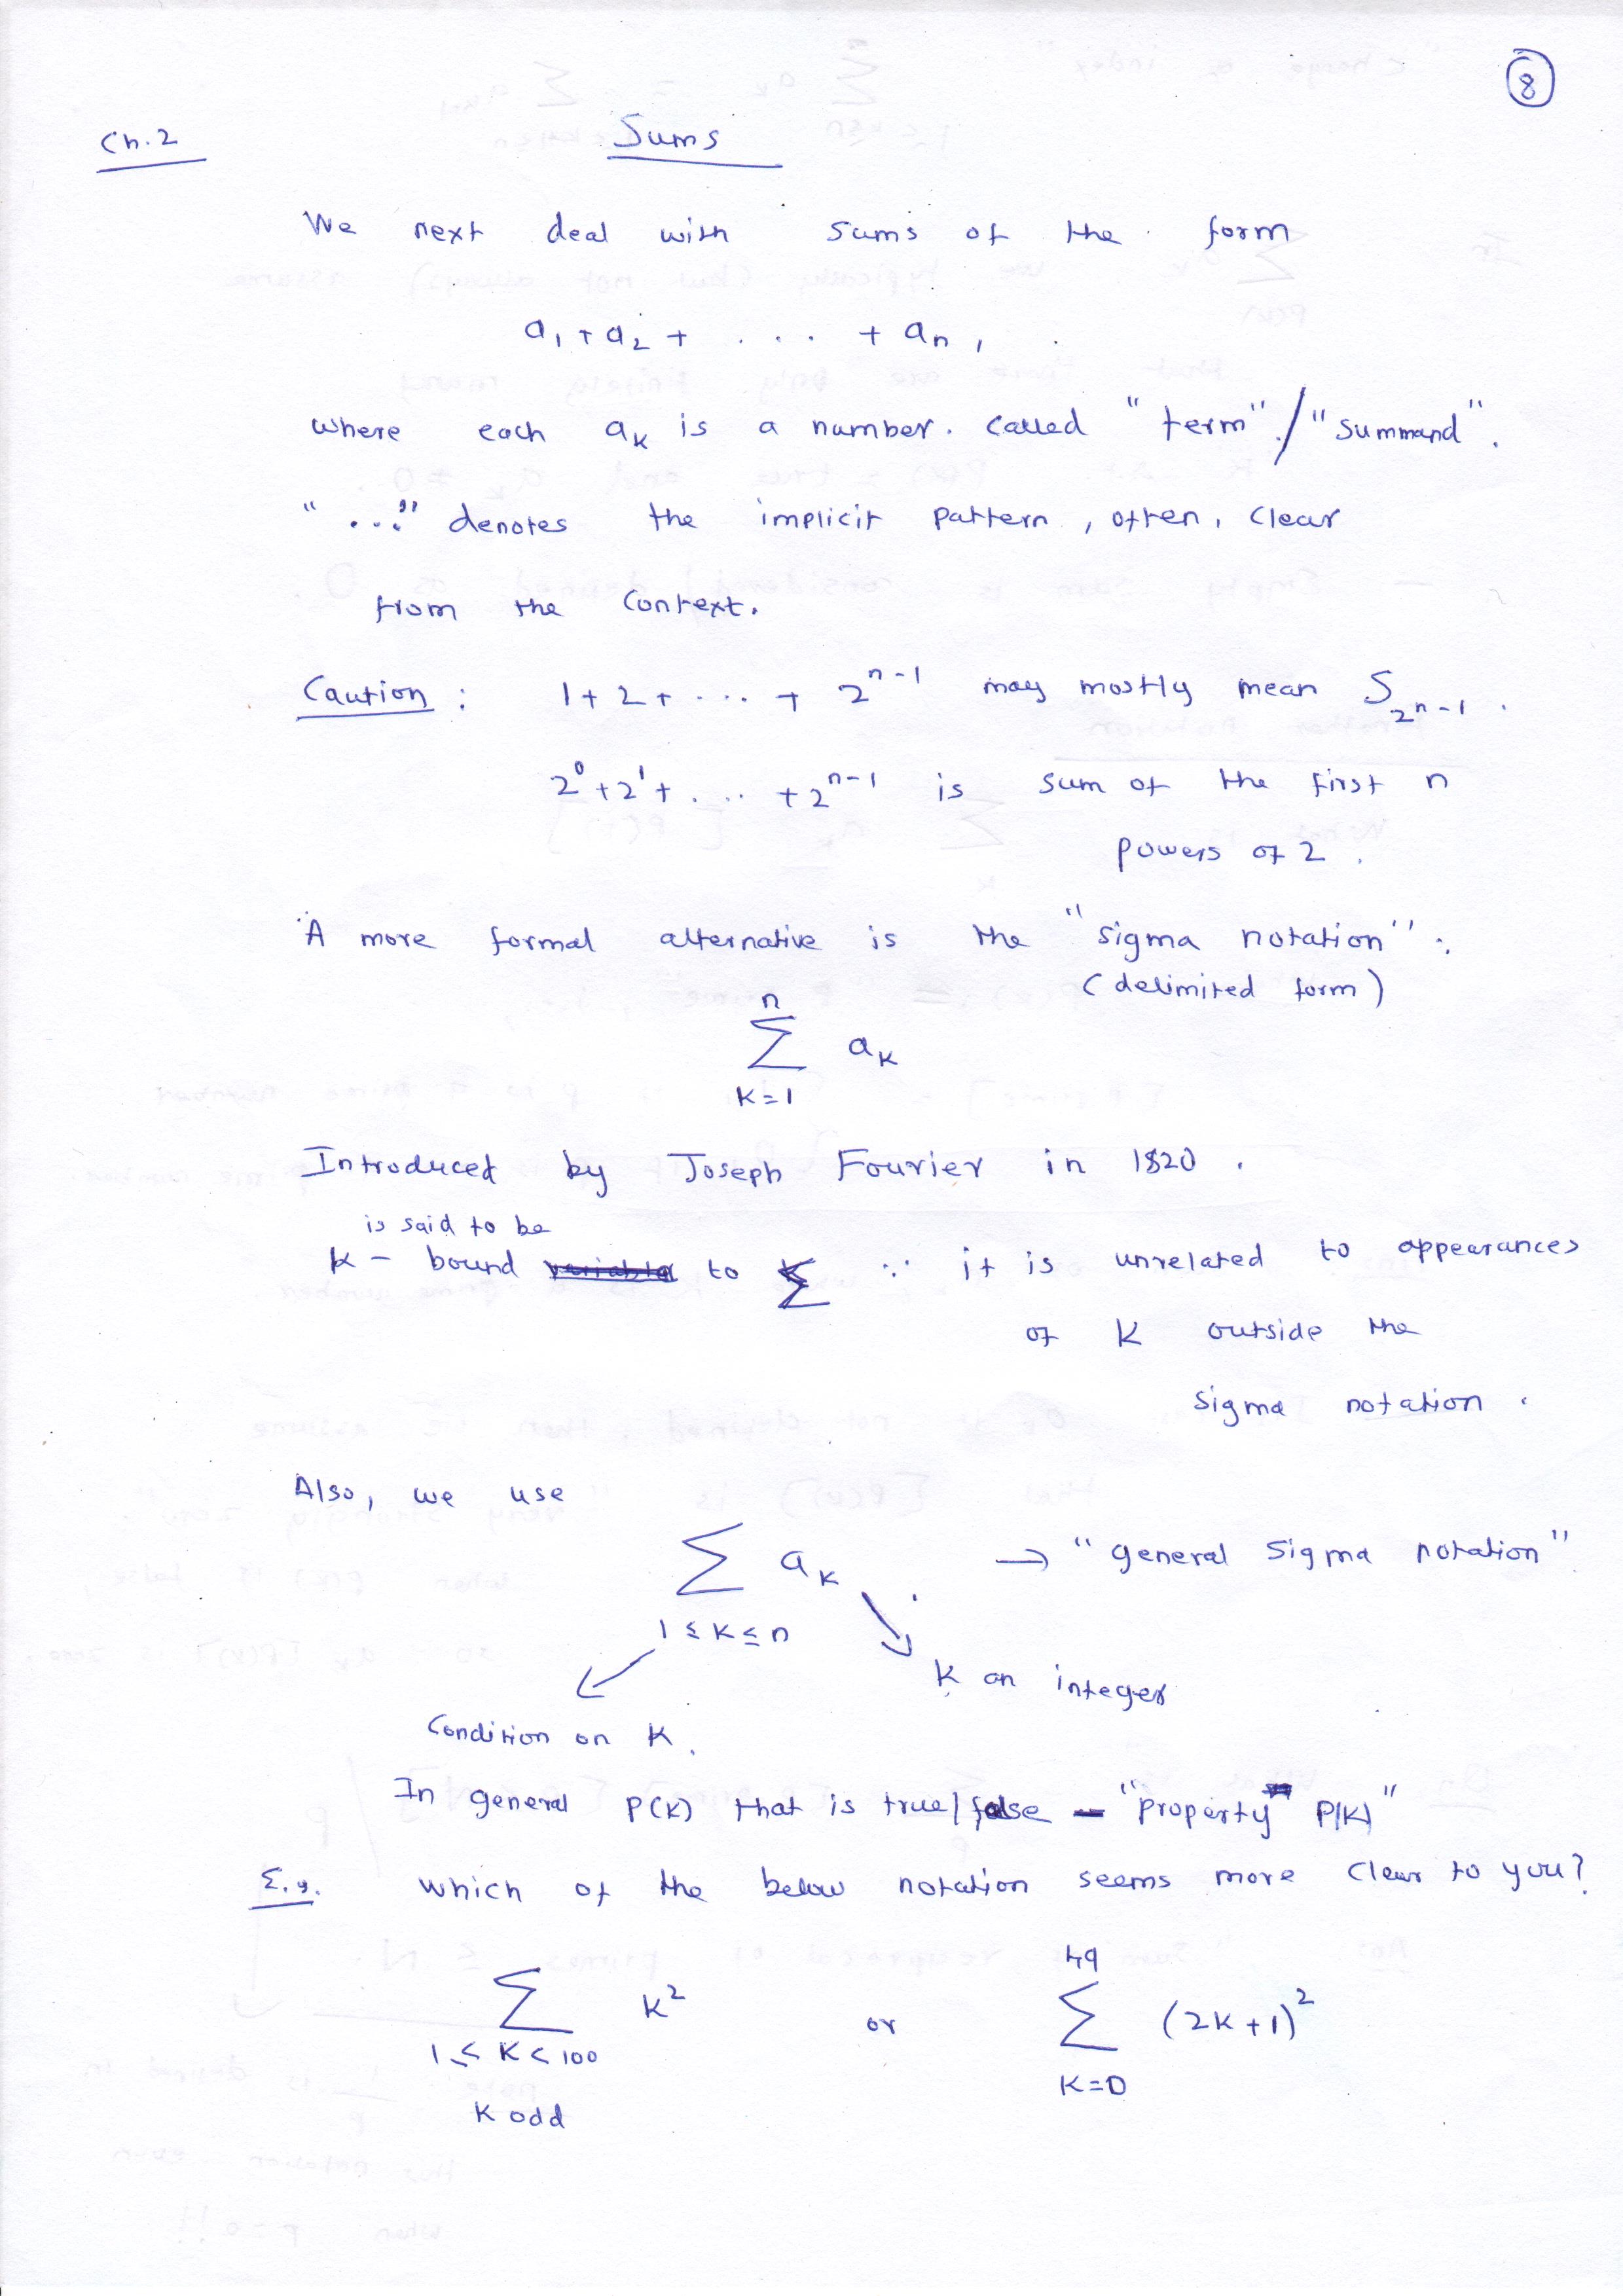 8
Ch.2 Sums
We next deal with sums of the form
a₁ + a₂ + . . . + aₙ,
where each aₖ is a number. called "term"/"summand".
"..." denotes the implicit pattern, often, clear
from the context.
Caution : 1 + 2 + ... + 2ⁿ⁻¹ may mostly mean S₂ₙ₋₁.
2⁰ + 2¹ + . .. + 2ⁿ⁻¹ is sum of the first n
powers of 2.
A more formal alternative is the "sigma notation" :
(delimited form)
n
∑ aₖ
K=1
Introduced by Joseph Fourier in 1820.
is said to be
k - bound variable to ∑ ∵ it is unrelated to appearances
of K outside the
sigma notation.
Also, we use
∑ aₖ → "general sigma notation"
1 ≤ K ≤ n
K an integer
Condition on K.
In general P(K) that is true/false – "property P(K)"
E.g. which of the below notation seems more clear to you?
49
∑ k² or ∑ (2K+1)²
1 ≤ K < 100 K=0
K odd